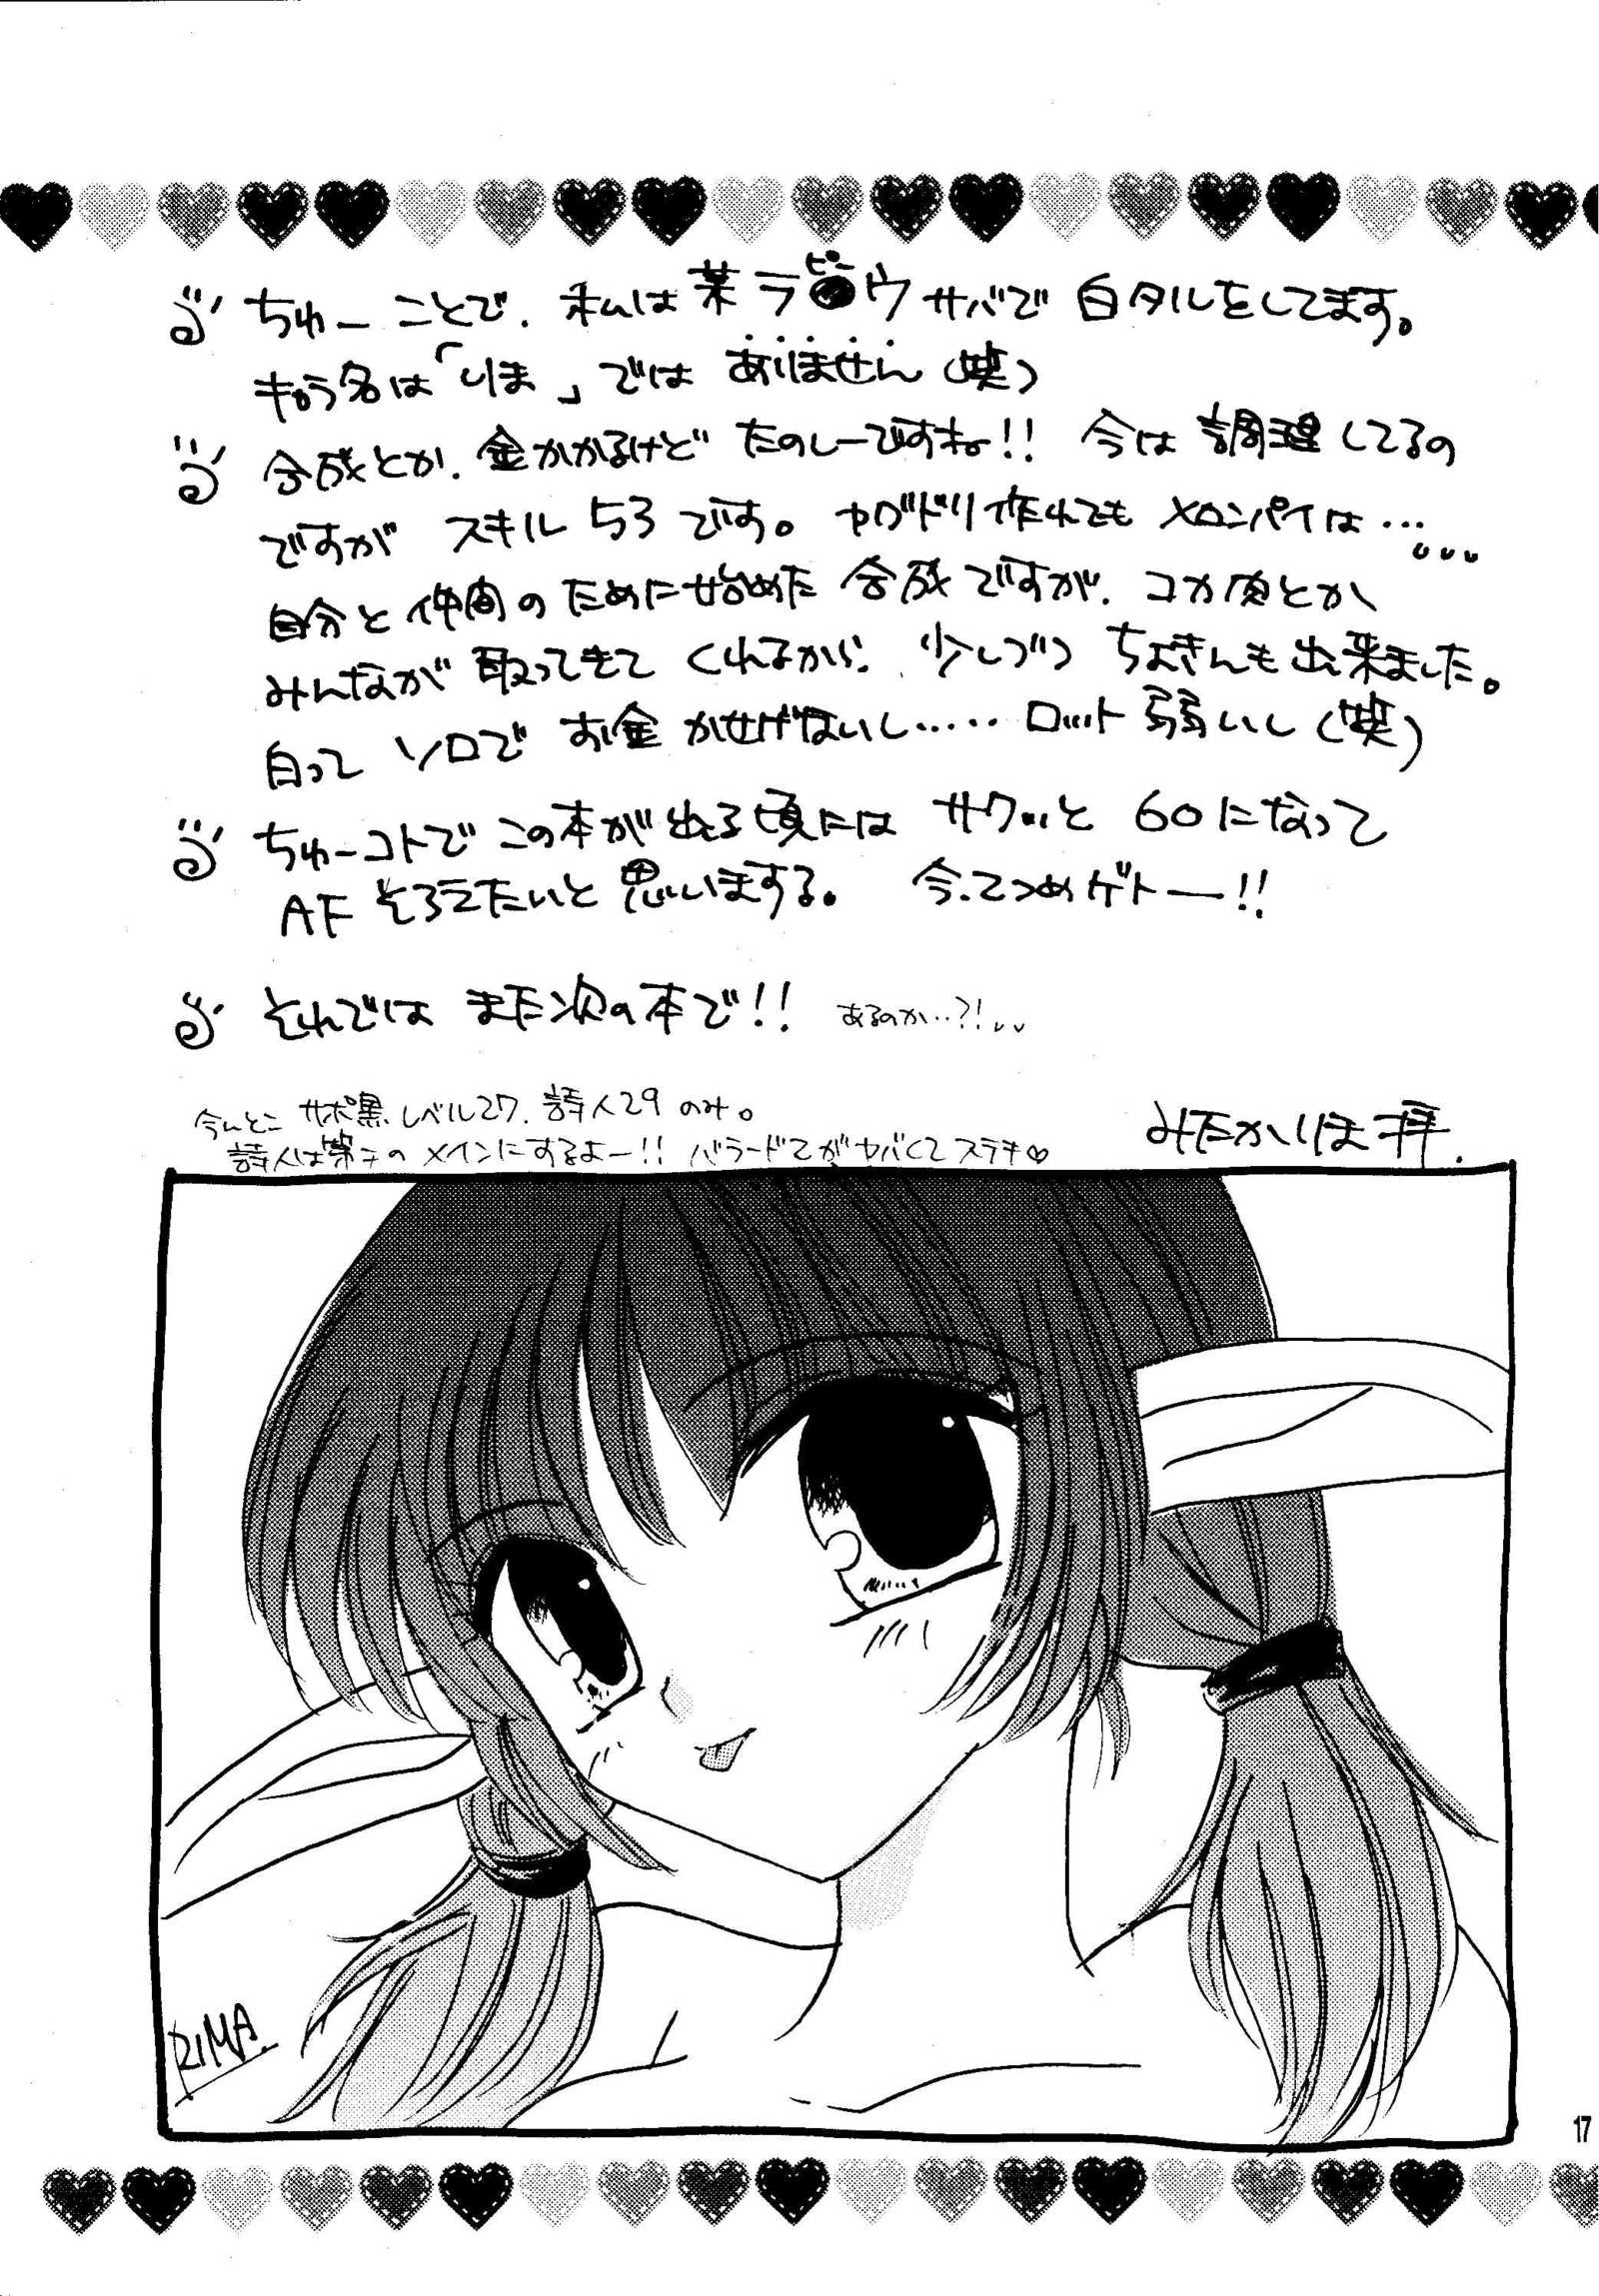 ちゅーことで、私は某ラ●ウサバで白タルをしてます。
キャラ名は「りま」ではありません(笑)
合成とか、金かかるけどたのしーですね!! 今は調理してるの
ですがスキル53です。ヤグドリ作れてもメロンパイは…
自分と仲間のために始めた合成ですが、コカ肉とか
みんなが取ってきてくれるから、少しづつちょきんも出来ました。
白ってソロでお金かせげないし・・・・・ロット弱いし(笑)
ちゅーコトでこの本が出る頃にはサクッと60になって
AFそろえたいと思いまする。 今、てつめゲトー!!
それではまた次の本で!! あるのか・・?!
今んとこサポ黒レベル27、詩人29のみ。
詩人は第二のメインにするよー!! バラード2がヤバくてステキ♡
みたかりま拝.
RIMA.
17